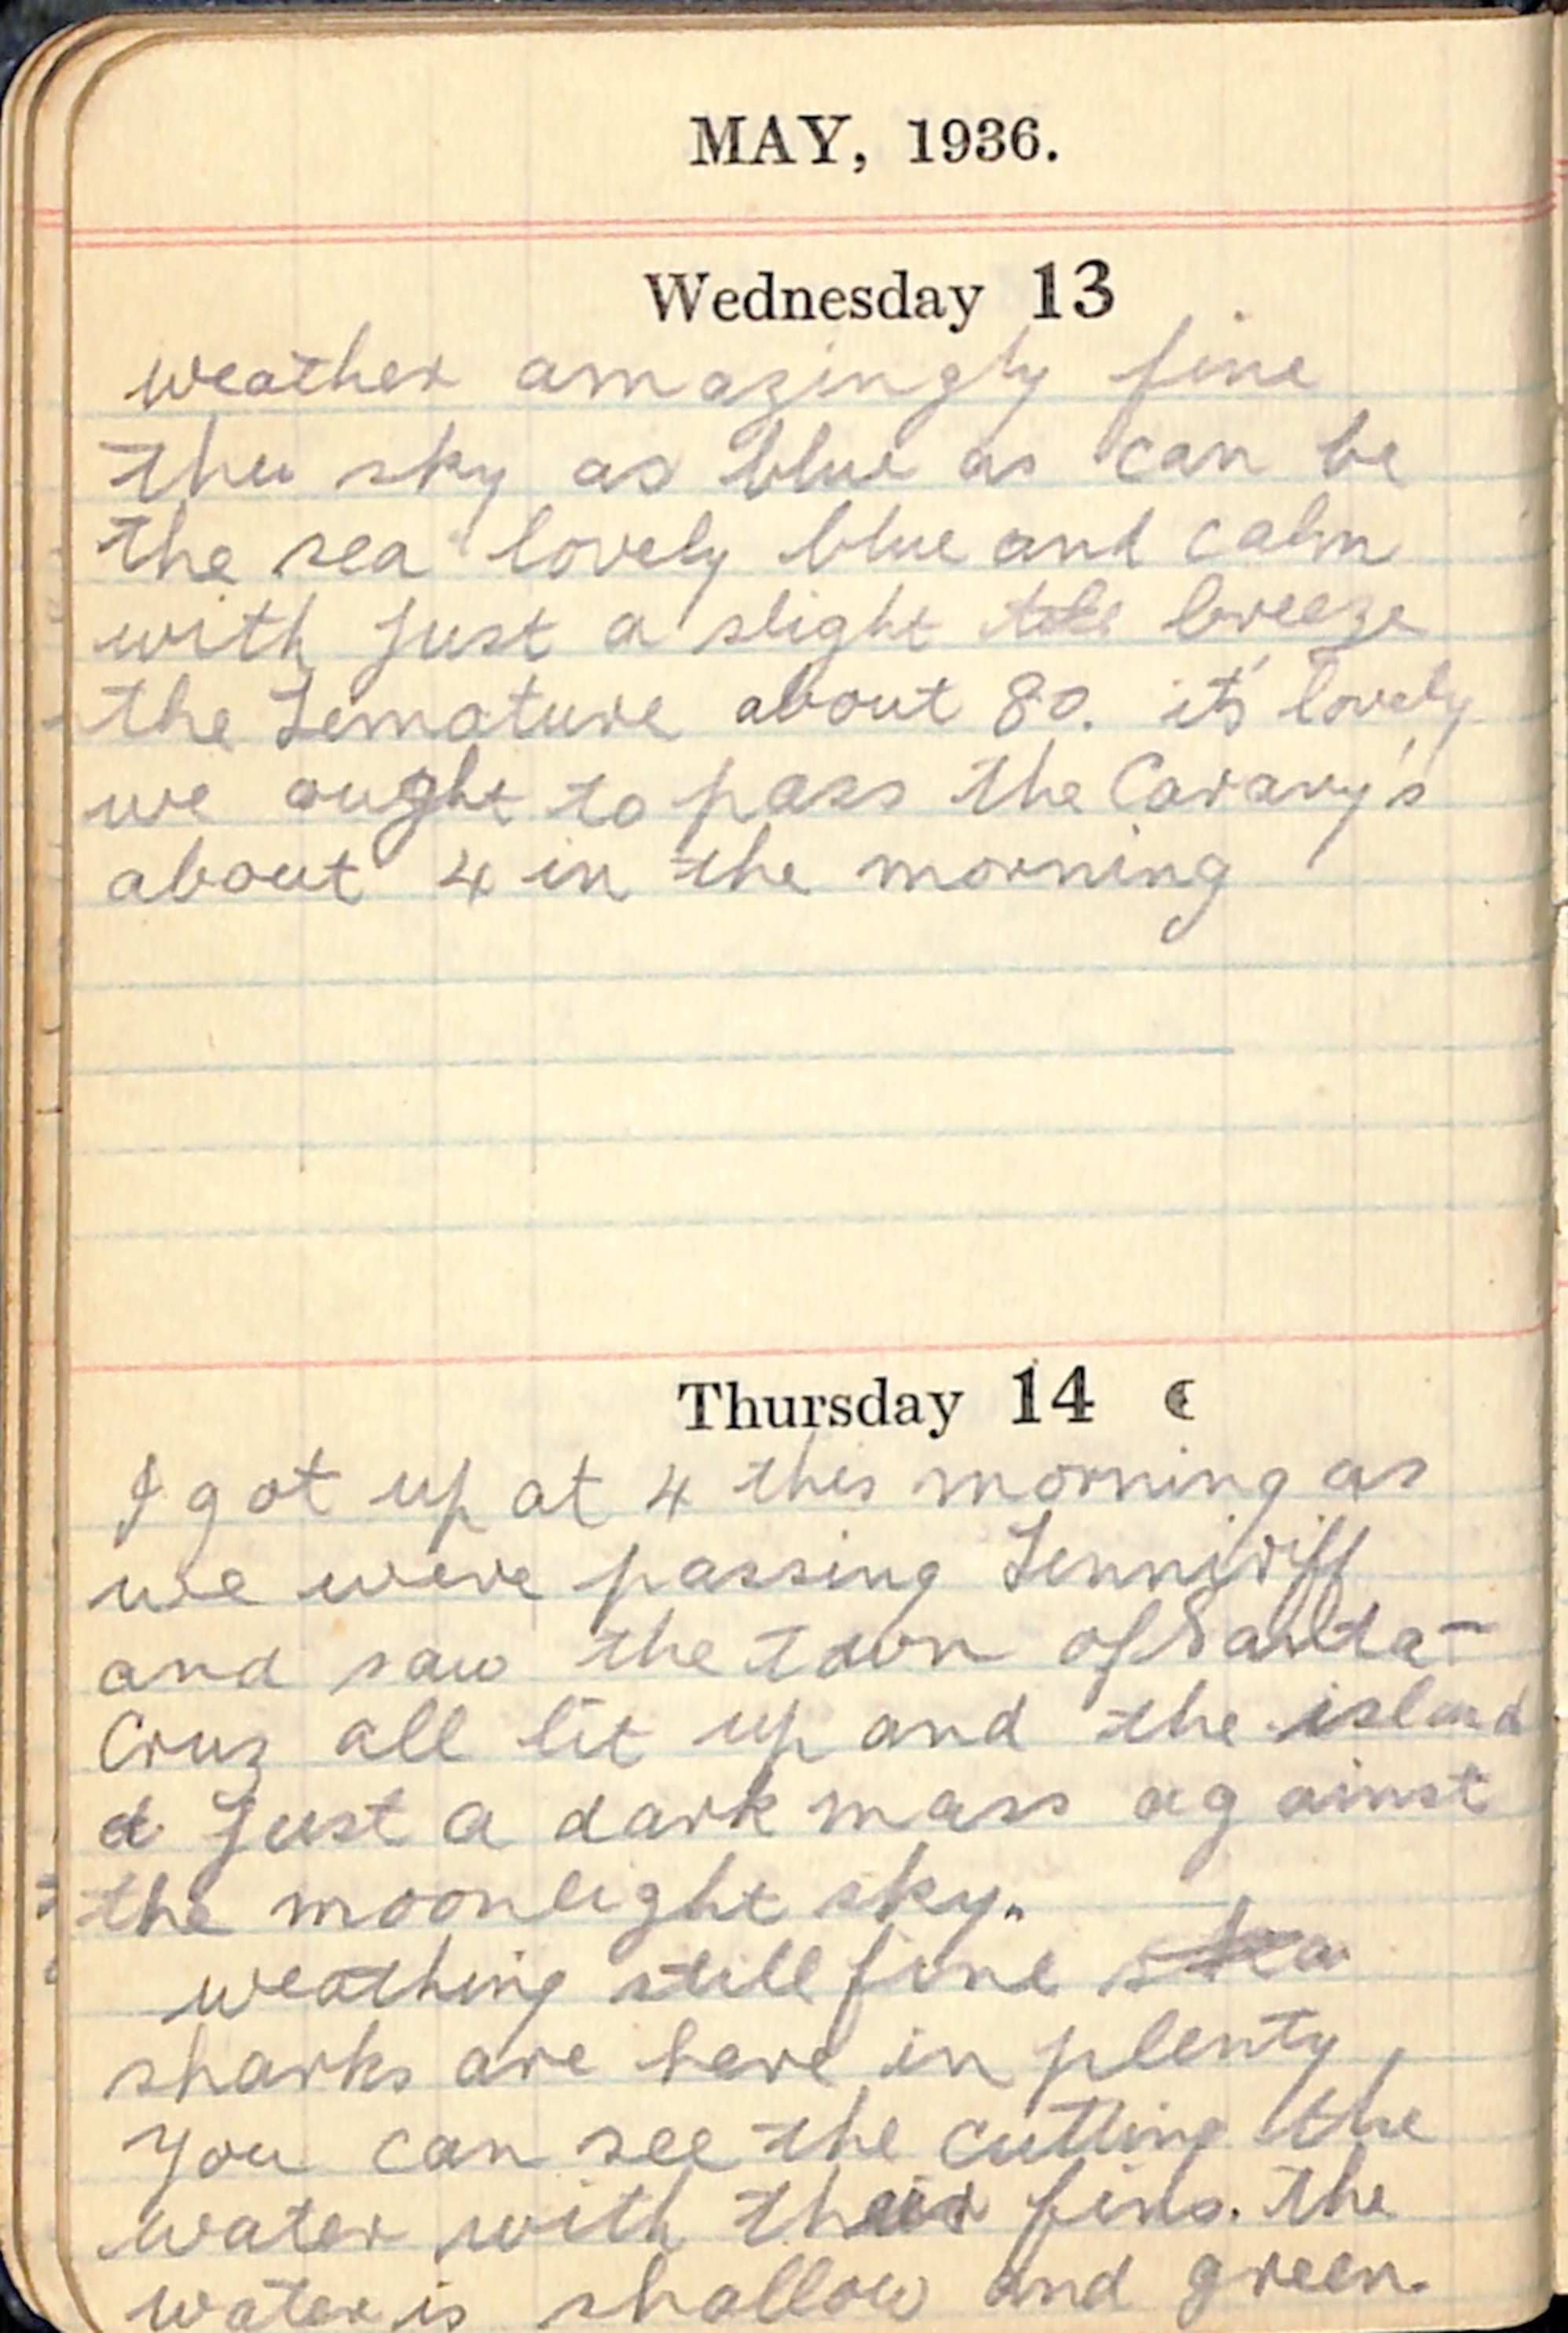 MAY, 1936.
Wednesday 13
weather amazingly fine
the sky as blue as can be
the sea lovely blue and calm
with just a slight breeze
the Temature about 80. it's lovely
we ought to pass the Carary's
about 4 in the morning
Thursday 14
I got up at 4 this morning as
we were passing Tenniriff
and saw the town of Santa-
Cruz all lit up and the island
d just a dark mass against
the moonlight sky.
weathing still fine
sharks are here in plenty,
you can see the cutting the
water with their fins. the
water is shallow and green.